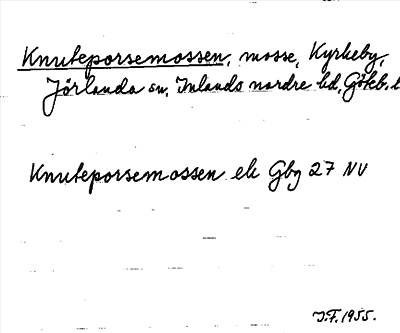 Knuteporsemossen, mosse, Kyrkeby,
Jörlanda sn, Inlands nordre hd, Göteb. l
Knuteporsemossen ek Gbg 27 NV
J.F. 1955.